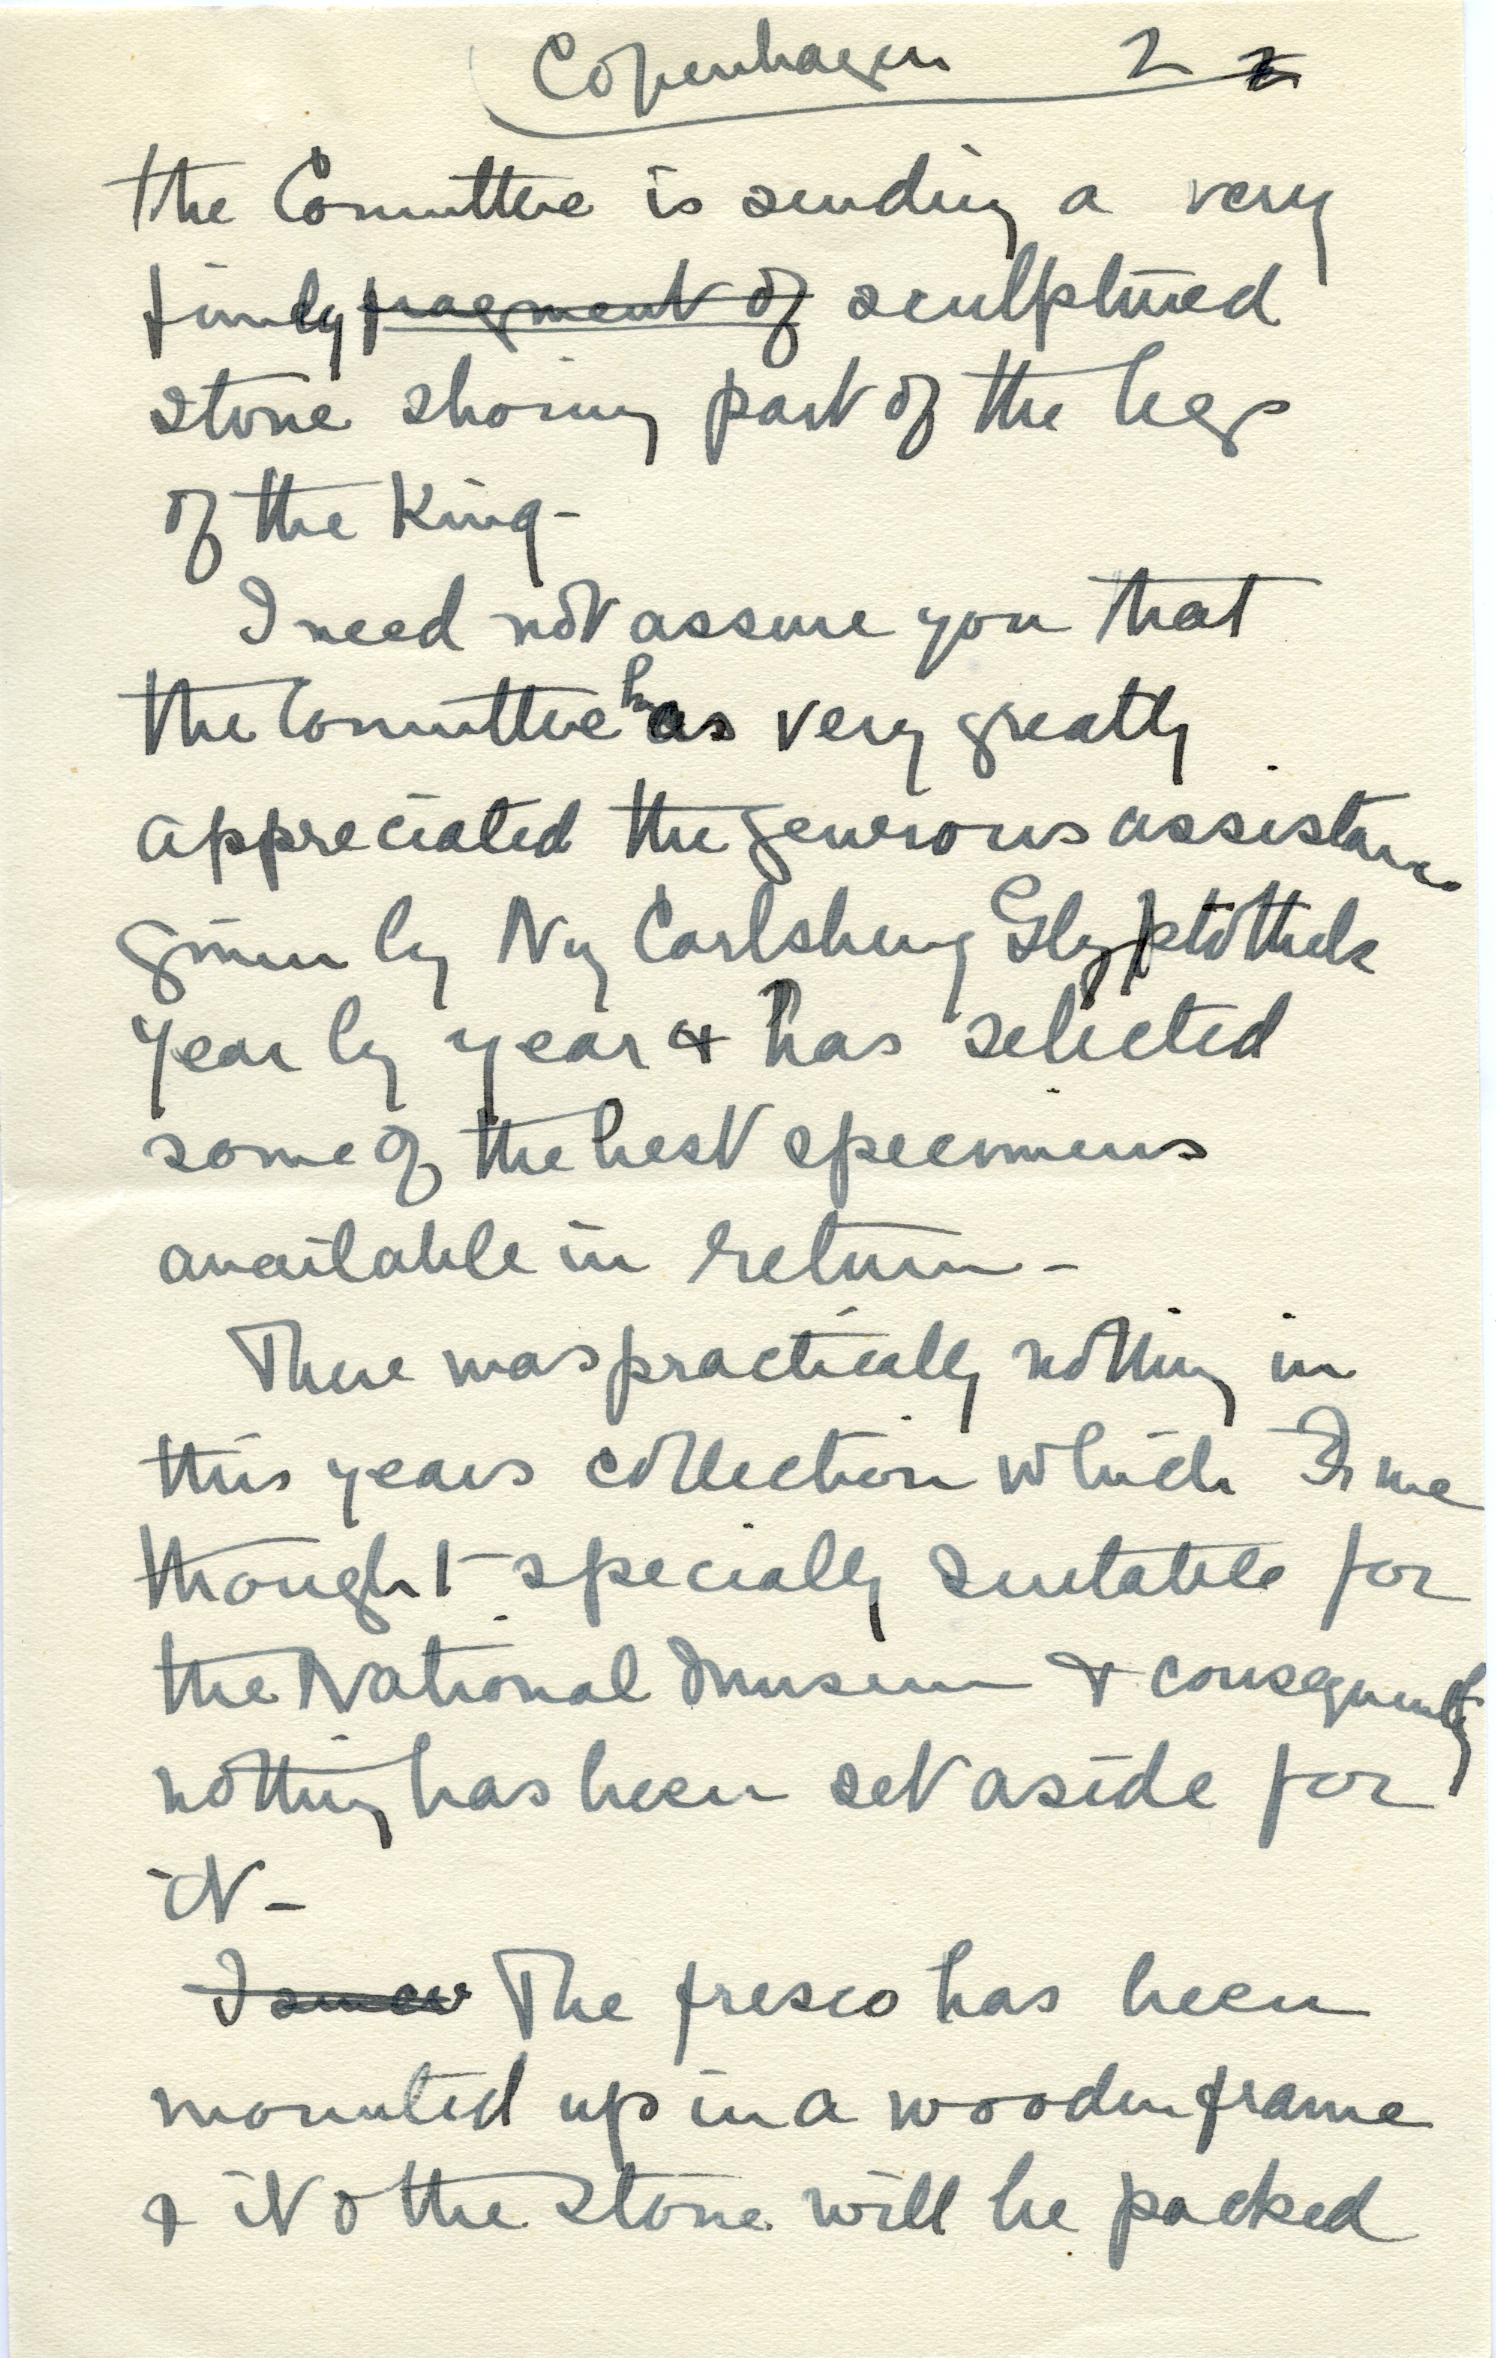 Copenhagen 2
the Committee is sending a very
finely fragment of sculptured
stone showing part of the legs
of the King -
I need not assure you that
the Committee has very greatly
appreciated the generous assistance
given by Ny Carlsberg Glyptothek
year by year & has selected
some of the best specimens
available in return -
There was practically nothing in
this years collection which I
thought specially suitable for
the National Museum & consequently
nothing has been set aside for
it -
I The fresco has been
mounted up in a wooden frame
& it & the stone will be packed